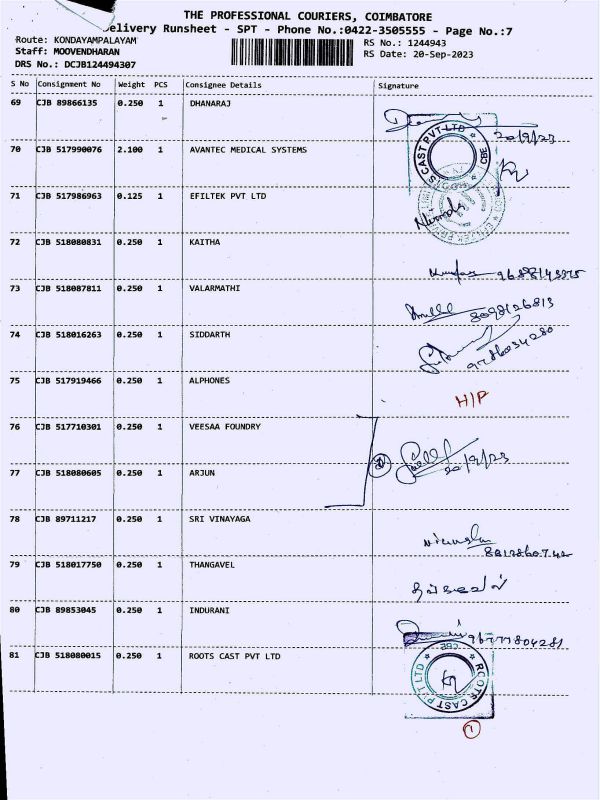 THE PROFESSIONAL COURIERS, COIMBATORE
Delivery Runsheet - SPT - Phone No.:0422-3505555 - Page No.:7
Route: KONDAYAMPALAYAM RS No.: 1244943
Staff: MOOVENDHARAN RS Date: 20-Sep-2023
DRS No.: DCJB124494307
S No Consignment No Weight PCS Consignee Details Signature
69 CJB 89866135 0.250 1 DHANARAJ
20/9/23
70 CJB 517990076 2.100 1 AVANTEC MEDICAL SYSTEMS
CAST PVT LTD CBE
71 CJB 517986963 0.125 1 EFILTEK PVT LTD
72 CJB 518080831 0.250 1 KAITHA
73 CJB 518087811 0.250 1 VALARMATHI
8098126813
74 CJB 518016263 0.250 1 SIDDARTH
9786034280
75 CJB 517919466 0.250 1 ALPHONES
H/P
76 CJB 517710301 0.250 1 VEESAA FOUNDRY
20/9/23
77 CJB 518080605 0.250 1 ARJUN
78 CJB 89711217 0.250 1 SRI VINAYAGA
79 CJB 518017750 0.250 1 THANGAVEL
தங்கவேல்
80 CJB 89853045 0.250 1 INDURANI
9677804281
81 CJB 518080015 0.250 1 ROOTS CAST PVT LTD
ROOTS CAST PVT LTD CBE
1